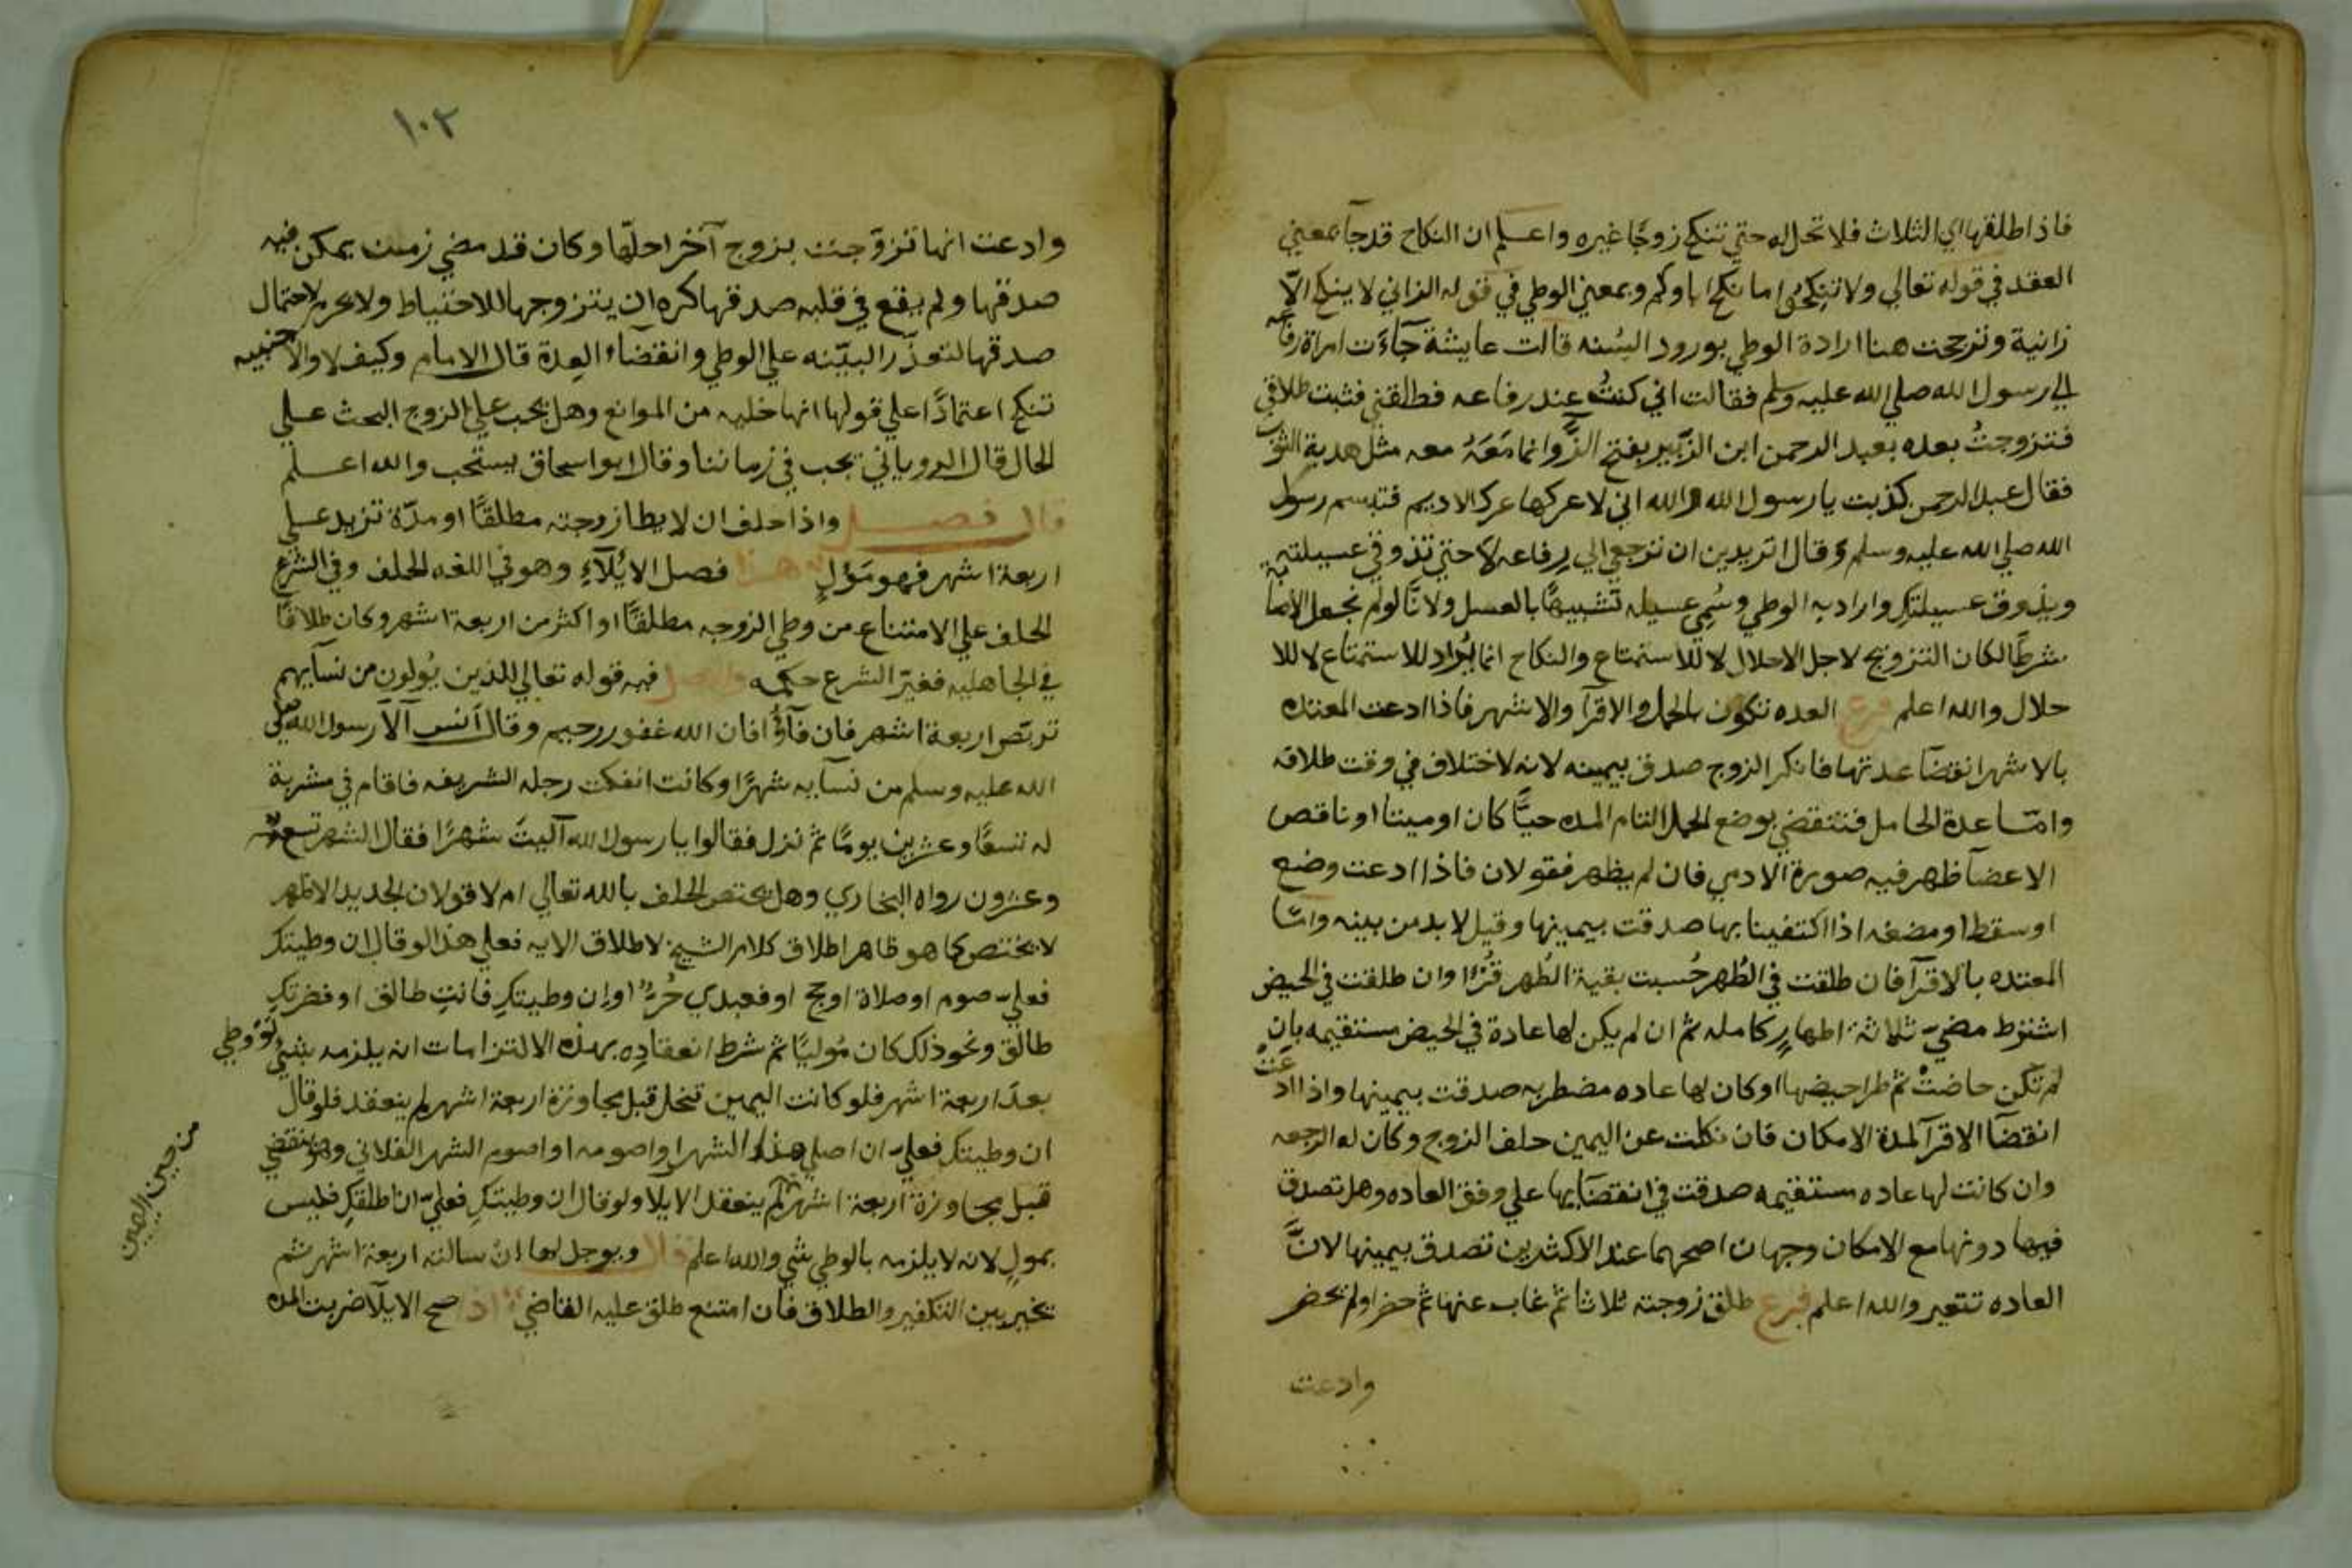 فاذا طلقها اي الثلاث فلا تحل له حتي تنكح زوجًا غيره واعلم ان النكاح قد جآ بمعني
العقد في قوله تعالي ولا تنكحوا ما نكح اباوكم وبمعني الوطي في قوله الزاني لا ينكح الّا
زانية وترجحت هنا ارادة الوطي بورود السُنه قالت عايشة جآءَت امراة رفاعه
الي رسول الله صلي الله عليه وسلم فقالت اني كنتُ عند رفاعه فطلقني فثبت طلاقي
فتزوجتُ بعده بعبد الرحمن ابن الزَّبير بفتح الزَّ وانما مَعَهُ معه مثل هدبة الثوب
فقال عبد الرحمن كذبت يا رسول الله والله اني لاعركها عرك الاديم فتبسم رسول
الله صلي الله عليه وسلم وقال اتريدين ان ترجعي الي رفاعه لا حتي تذوقي عسيلته
ويذوق عسيلتكِ واراد به الوطي وسُمِي عسيله تشبيهًا بالعسل ولانَّا لو لم نجعل الاصابة
شرطًا لكان التزويج لاجل الاحلال لا للاستمتاع والنكاح انما يُراد للاستمتاع لا للا
حلال والله اعلم فرع العده تكون بالحمل والاقرآ والاشهر فاذا ادعت المعتده
بالاشهر انقضآ عدتها فانكر الزوج صدق بيمينه لانه لاختلاف في وقت طلاقه
وامّا عدة الحامل فتنقضي بوضع الحمل التام المده حيًّا كان او ميتا او ناقص
الاعضآ ظهر فيه صورة الادمي فان لم يظهر فقولان فاذا ادعت وضع
او سقطا او مضغه اذا اكتفينا بها صدقت بيمينها وقيل لا بد من بينه وامّا
المعتده بالاقرآ فان طلقت في الطُهر حُسبت بقية الطُهر قُرْءًا وان طلقت في الحيض
اشترط مضيّ ثلاثة اطهارٍ كامله ثم ان لم يكن لها عادة في الحيض مستقيمه بان
لم تكن حاضتْ ثم طرا حيضها او كان لها عاده مضطربه صدقت بيمينها واذا ادعَتْ
انقضآ الاقرآ لمدة الامكان فان نكلت عن اليمين حلف الزوج وكان له الرجعه
وان كانت لها عاده مستقيمه صدقت في انقضآيها علي وفق العاده وهل تصدق
فيما دونها مع الامكان وجهان اصحهما عند الاكثرين تصدق بيمينها لانَّ
العاده تتغير والله اعلم فرع طلق زوجته ثلاثا ثم غاب عنها ثم حضر او لم يحضر
وادعت
١٠٢
وادعت انها تزوّجت بزوج آخر احلّها وكان قد مضي زمن يمكن فيه
صدقها ولم يقع في قلبه صدقها كره ان يتزوجها للاحتياط ولا يحرم لاحتمال
صدقها لتعذّر البيّنه علي الوطي وانقضآء العِدة قال الامام وكيف لا والاجنبيه
تنكح اعتمادًا علي قولها انها خليه من الموانع وهل يجب علي الزوج البحث علي
الحال قال الروياني يجب في زماننا وقال ابو اسحاق يستحب والله اعلم
قال فصل واذا حلف ان لا يطا زوجته مطلقًا او مدّة تزيد علي
اربعة اشهر فهو مَوْلٍ هذا فصل الايْلآءِ وهو في اللغه الحلف وفي الشرع
الحلف علي الامتناع من وطي الزوجه مطلقًا او اكثر من اربعة اشهر وكان طلاقًا
في الجاهليه فغيّر الشرع حكمه والاصل فيه قوله تعالي للذين يُولون من نسآيهم
تربّص اربعة اشهر فان فآؤا فان الله غفور رحيم وقال انس آلا رسول الله صلي
الله عليه وسلم من نسآيه شهرًا وكانت انفكت رجله الشريفه فاقام في مشربة
له تسعًا وعشرين يومًا ثم نزل فقالوا يا رسول الله آليتَ شهرًا فقال الشهر تسعة
وعشرون رواه البخاري وهل يختص الحلف بالله تعالي ام لا قولان الجديد الاظهر
لا يختص كما هو ظاهر اطلاق كلام الشيخ لاطلاق الايه فعلي هذا لو قال ان وطيتكِ
فعليّ صوم او صلاة او حج او فعبدي حُرٌّ او ان وطيتكِ فانتِ طالق او فضرتكِ
طالق ونحو ذلك كان مُوليًا ثم شرط انعقادِه بهذه الالتزامات ان يلزمه شيٌ لو وطي
بعدَ اربعة اشهر فلو كانت اليمين تنحل قبل مجاوزة اربعة اشهر لم ينعقد فلو قال
ان وطيتكِ فعليّ ان اصلي هذا الشهر او اصومه او اصوم الشهر الفلاني وهو ينقضي
قبل مجاوزة اربعة اشهر لم ينعقد الايلا ولو قال ان وطيتكِ فعليّ ان اطلقكِ فليس
بمولٍ لانه لا يلزمه بالوطي شي والله اعلم قال ويوجل لها ان سالته اربعة اشهر ثم
يخير بين التكفير والطلاق فان امتنع طلق عليه القاضي اذا صح الايلآ ضربت المده
من حين اليمين